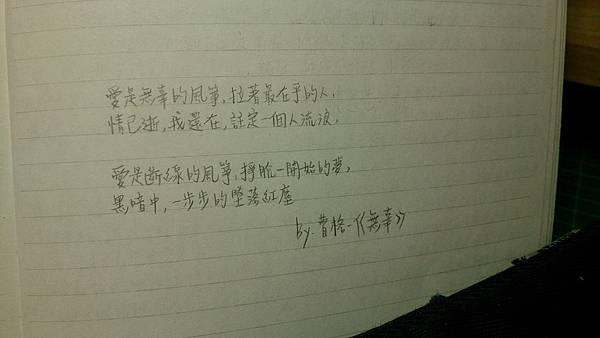 愛是無辜的風箏,拉著最在乎的人,
情已逝,我還在,註定一個人流浪,
愛是斷線的風箏,掙脫一開始的夢,
黑暗中,一步步的墜落紅塵
by.曹格-《無辜》